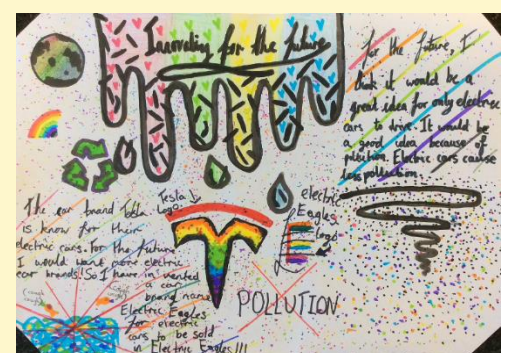 Innovating for the future
for the future, I
think it would be a
great idea for only electric
cars to drive. It would be
a good idea because of
pollution. Electric cars cause
less pollution.
Tesla
Logo
electric
Eagles
logo
The car brand Tesla
is know for their
electric cars. for the future
I would want more electric
car brands! So I have in vented
a car
brand name
Electric Eagles
for electric
cars to be sold
in Electric Eagles!!!
POLLUTION